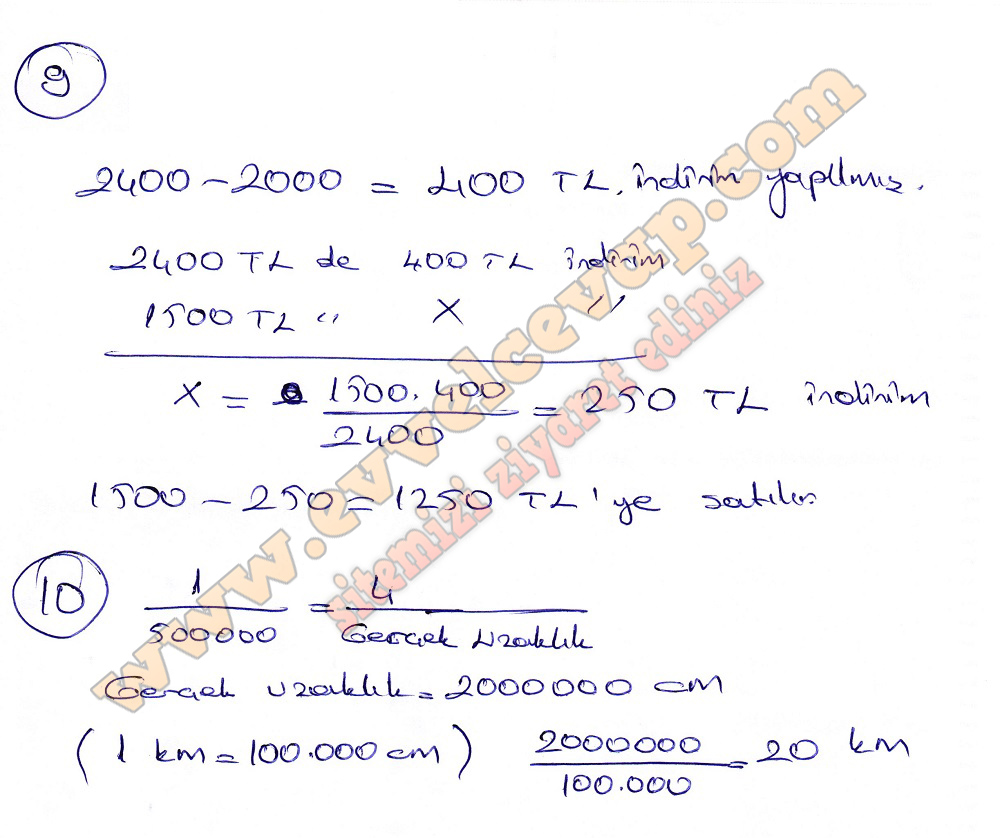 9
2400 - 2000 = 400 TL, indirim yapılmış.
2400 TL de 400 TL indirim
1500 TL " X "
X = 1500.400 / 2400 = 250 TL indirim
1500 - 250 = 1250 TL'ye satılır
10
1 / 500000 = 4 / Gerçek Uzaklık
Gerçek uzaklık = 2000000 cm
(1 km = 100.000 cm) 2000000 / 100.000 = 20 km
www.evvelcevap.com
sitemizi ziyaret ediniz